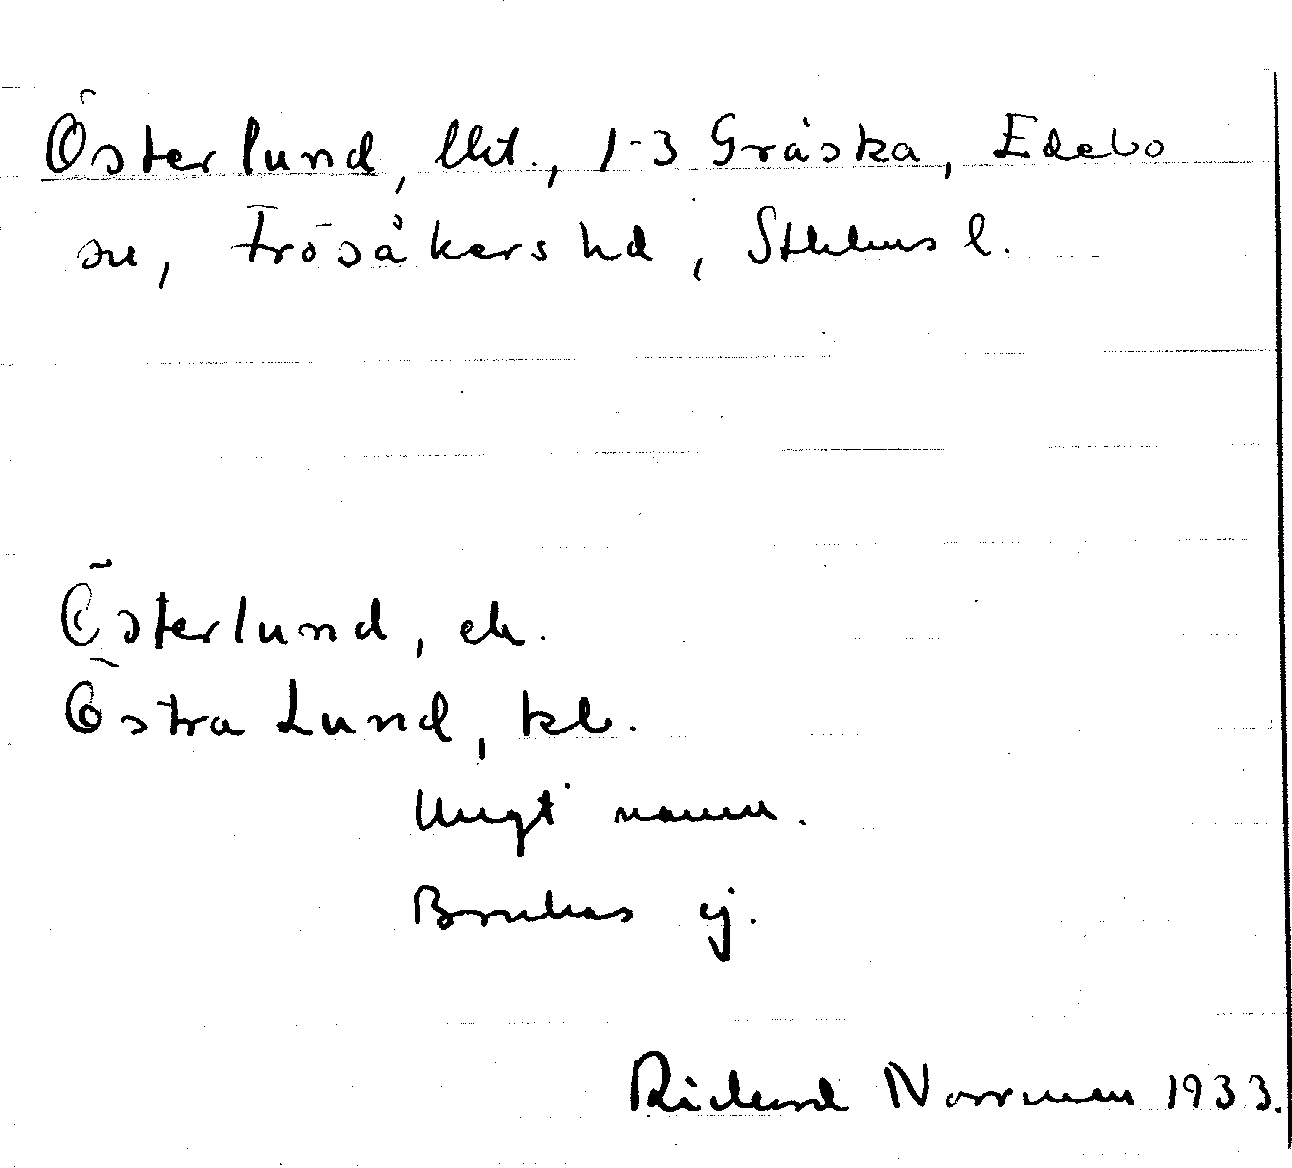 Österlund, lht., 1-3 Gråska, Edebo
sn, Frösåkers hd, Sthlms l.
Österlund, ek.
Östra Lund, kb.
Ungt namn.
Brukas ej.
Rickard Norrman 1933.